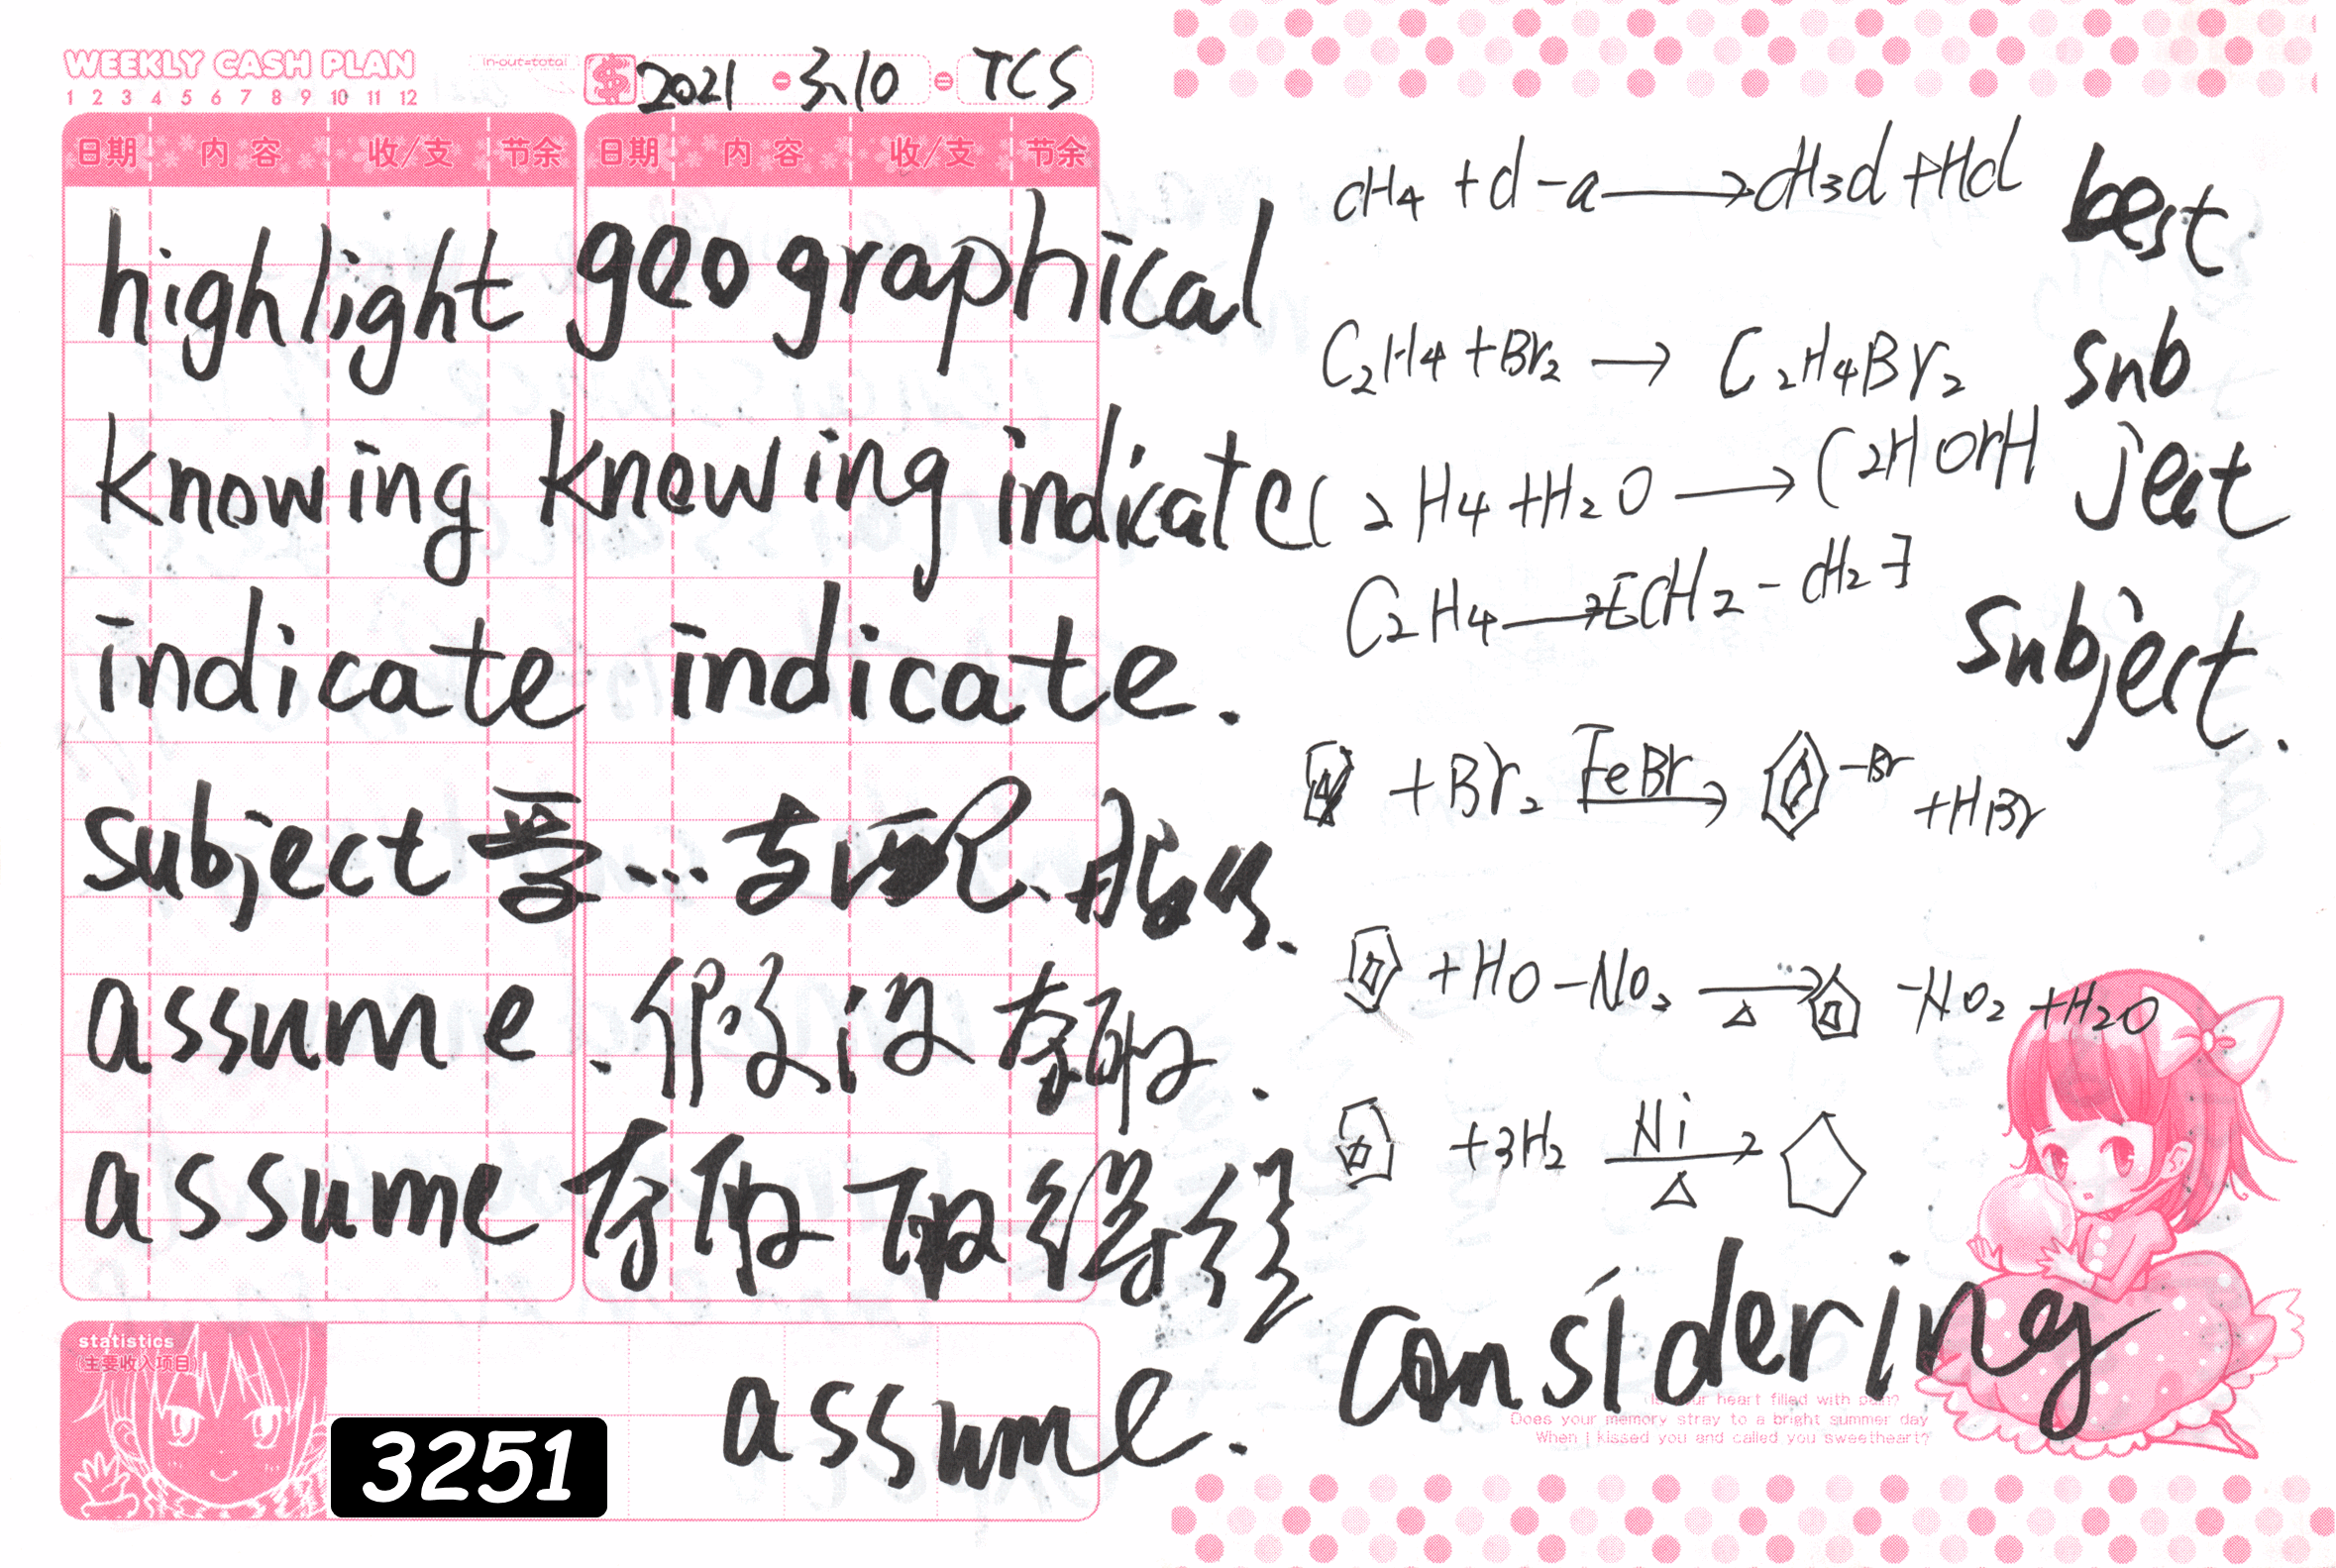 WEEKLY CASH PLAN
1 2 3 4 5 6 7 8 9 10 11 12
in-out=total
$ 2021 - 3.10 = TCS
日期 内容 收/支 节余 日期 内容 收/支 节余
highlight geographical
knowing knowing indicate
indicate indicate.
subject 受...支配、
assume.假设
assume 夺取 取得
assume.
statistics
(主要收入项目)
3251
CH4 + Cl-Cl → CH3Cl + HCl
best
C2H4 + Br2 → C2H4Br2
sub
C2H4 + H2O → C2HOrH
ject
C2H4 → [CH2 - CH2]
subject.
+ Br2 FeBr → -Br + HBr
+ HO - NO2 → △ -NO2 + H2O
+ 3H2 Ni → △
considering
your heart filled with pain?
Does your memory stray to a bright summer day
When I kissed you and called you sweetheart?